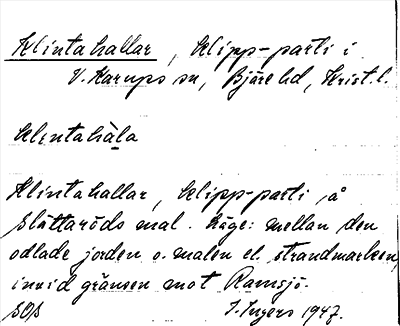 Klintahallar, klipp-parti i
V. Karups sn, Bjäre hd, Krist. l.
klintahäla
Klintahallar, klipp-parti, å
Slättaröds mal. Läge: mellan den
odlade jorden o. malen el. strandmarken,
invid gränsen mot Ramsjö.
I. Ingers 1947.